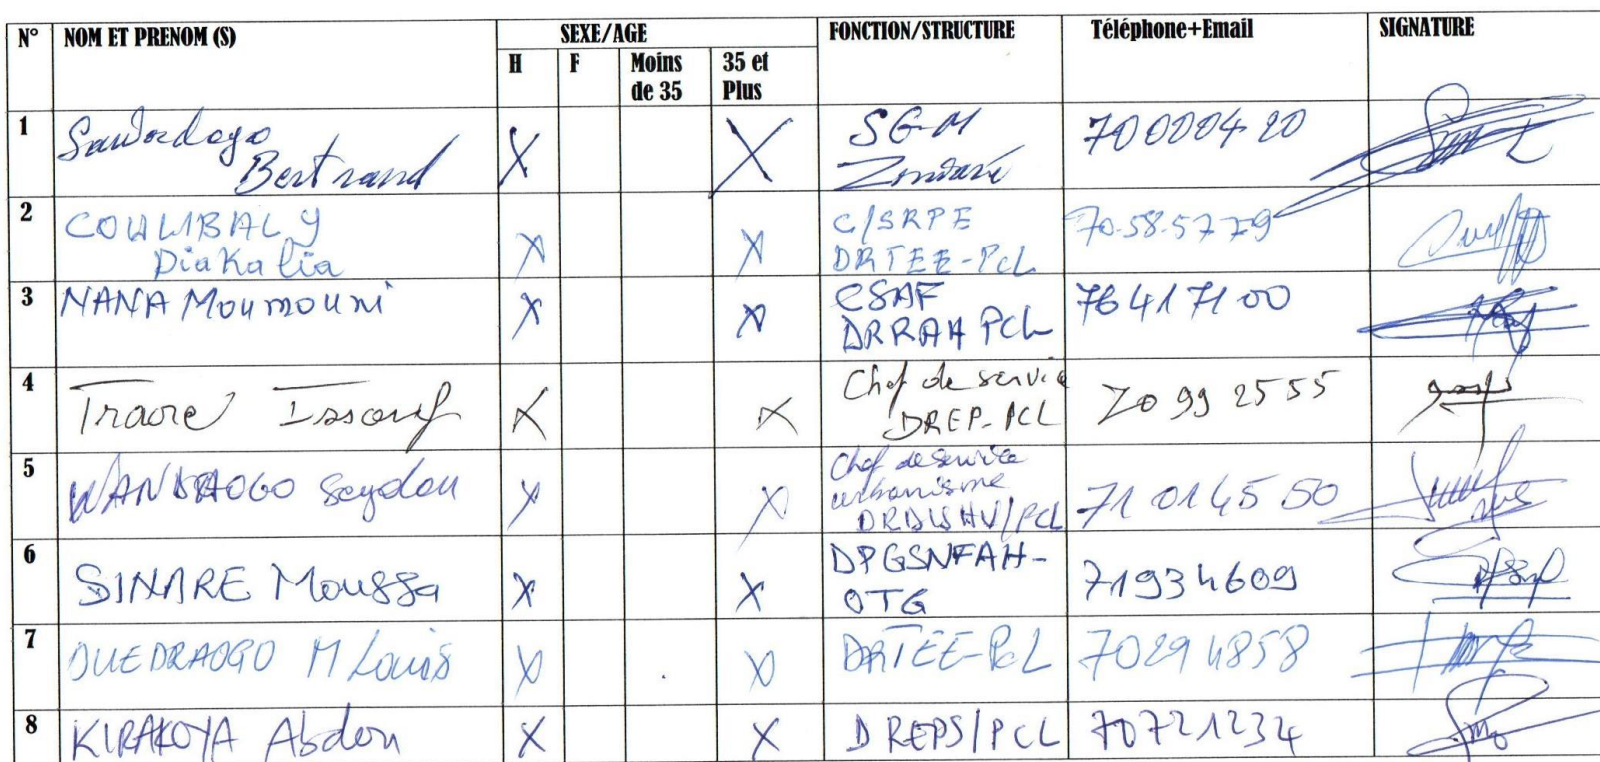 N° NOM ET PRENOM (S) SEXE/AGE FONCTION/STRUCTURE Téléphone+Email SIGNATURE
H F Moins de 35 35 et Plus
1 Sawadogo Bertrand X X SG-M 70000420
2 COULIBALY Diakalia X X C/SRPE DRTEE-PCL 70.58.57.79
3 NANA Moumouni X X CSAF DRRAH PCL 76417100
4 Traore Issouf X X Chef de service DREP-PCL 70 99 25 55
5 Seydou X X Chef de service urbanisme DRDUHV/PCL 71 01 45 50
6 SINARE Moussa X X DPGSNFAH-OTG 71934609
7 OUEDRAOGO M Louis X X DRTEE-PCL 70294858
8 KIRAKOYA Abdou X X DREPS/PCL 70721234